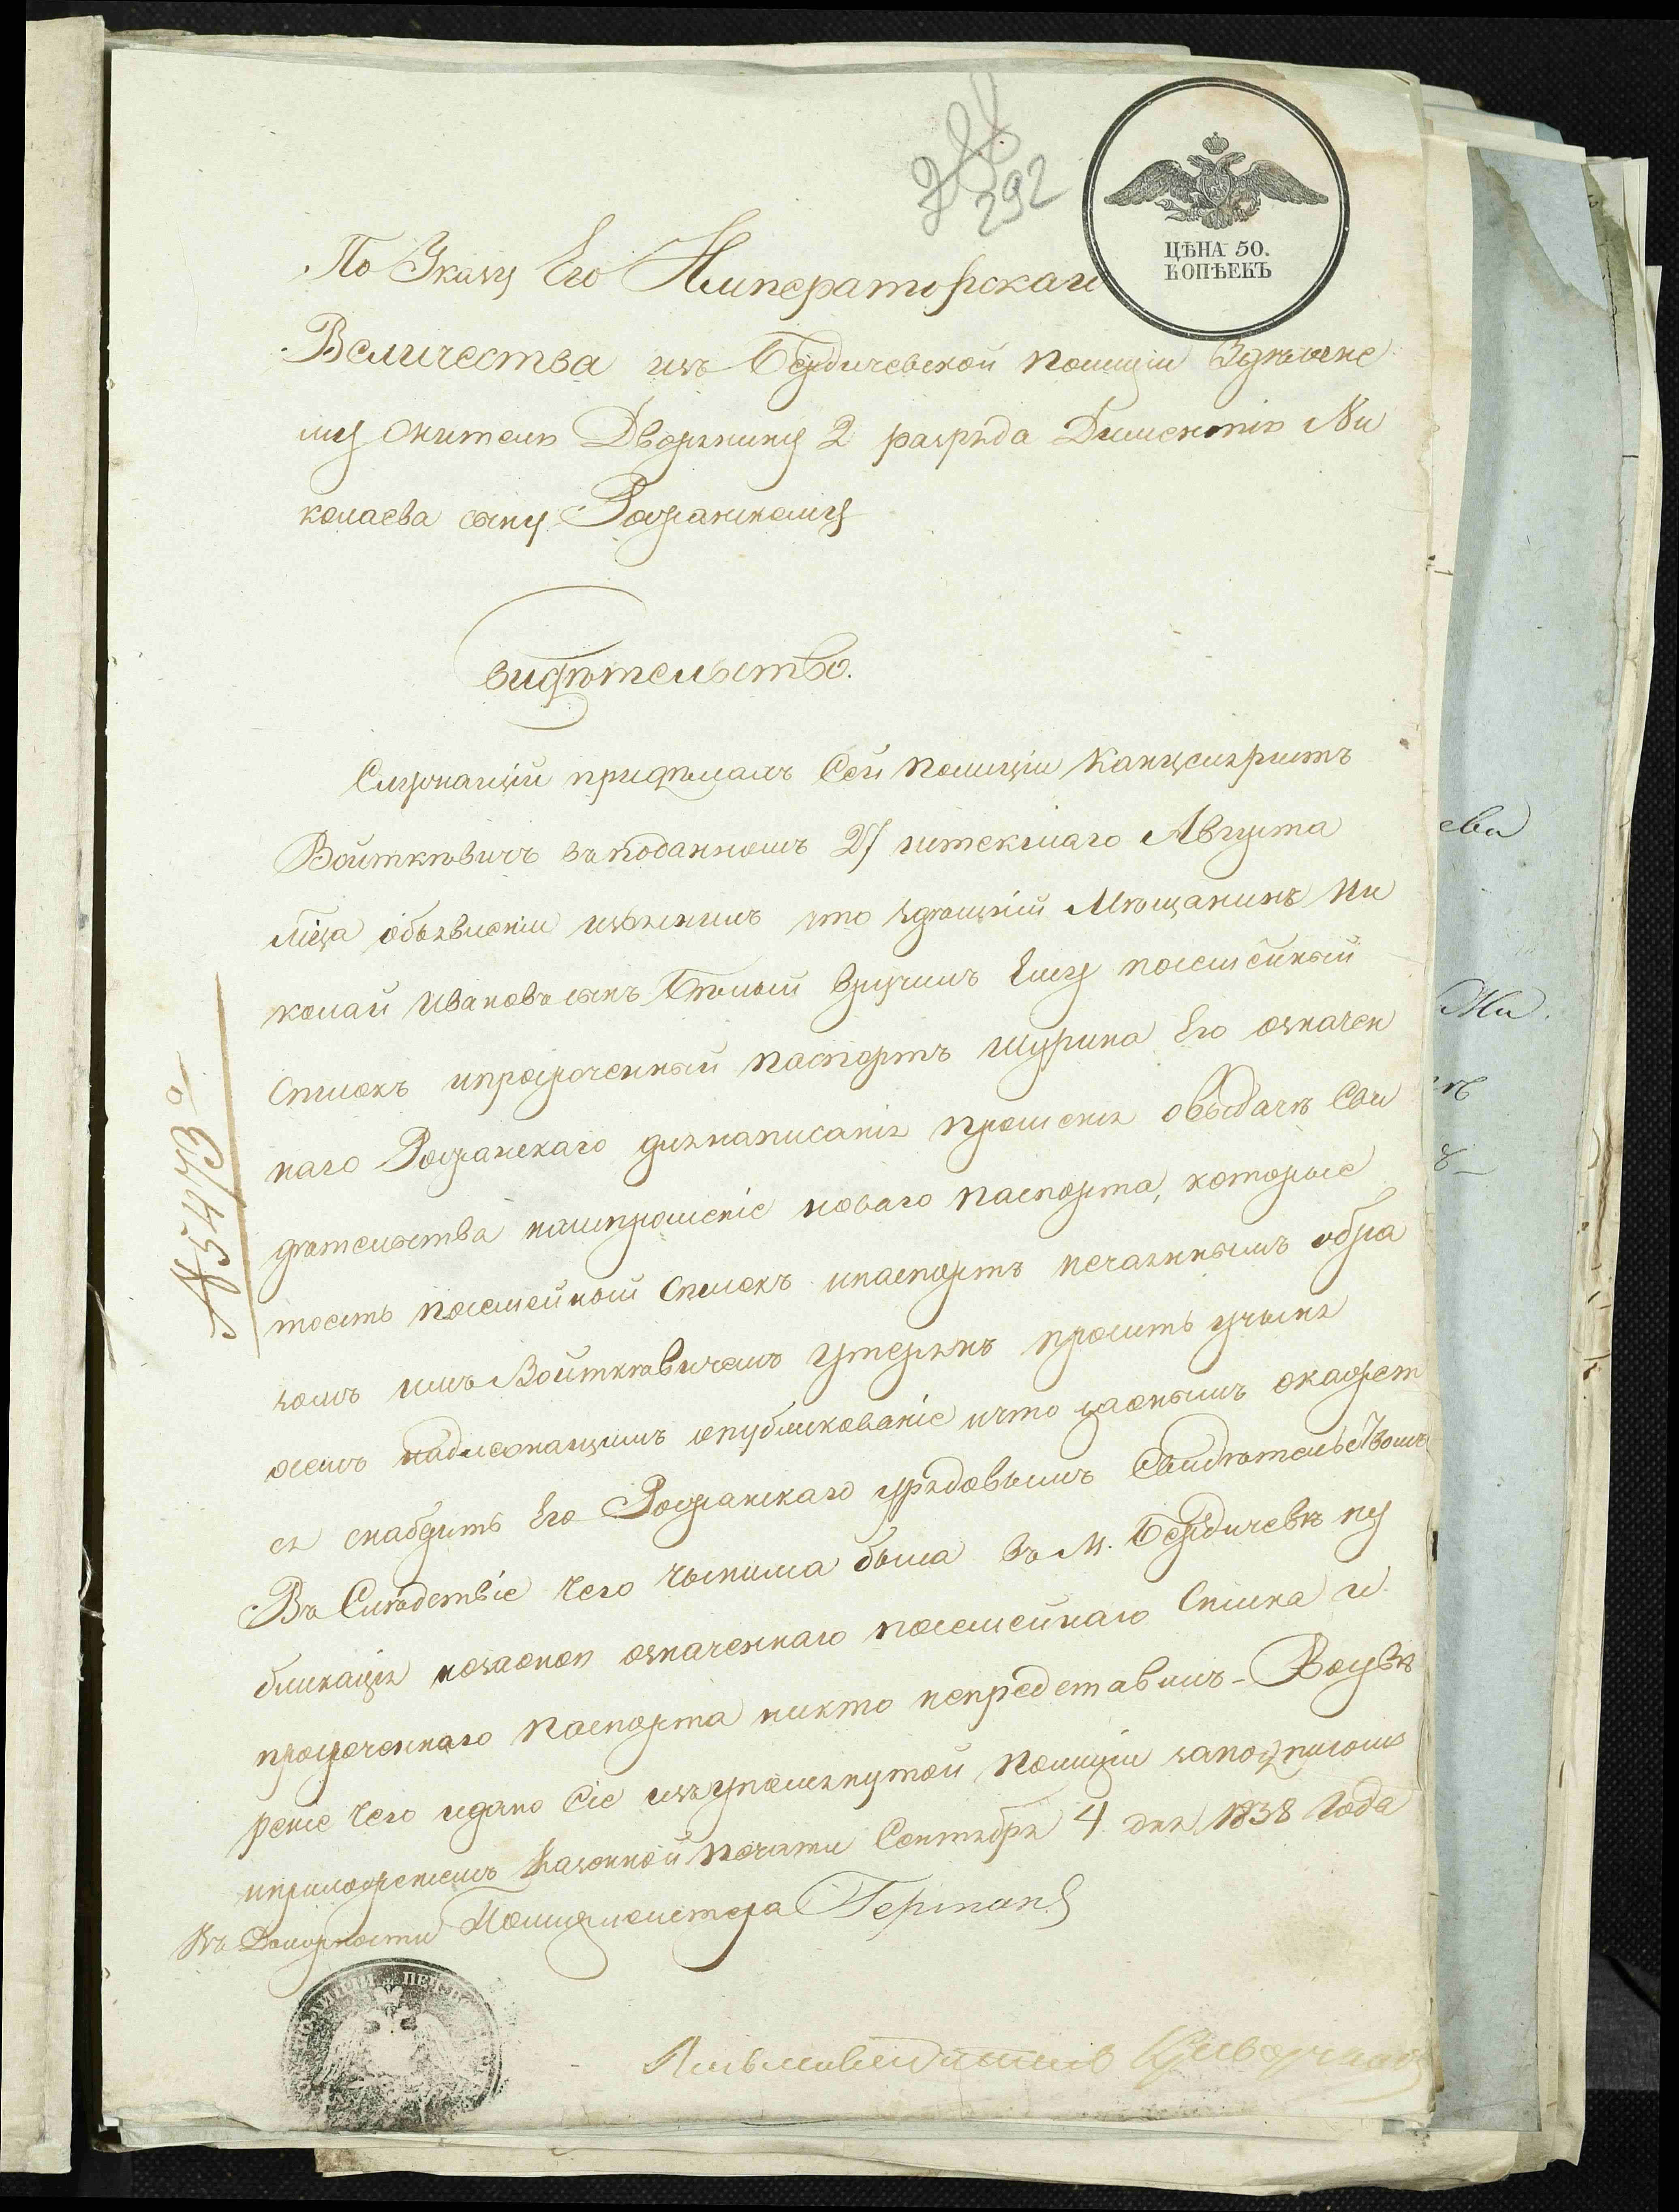 292
ЦѢНА 50.
КОПѢЕКЪ
По Указу Его Императорскаго
Величества изъ Бердичевской Полиціи Здѣшне
му жителю Дворянину 2 разряда Дементію Ни
колаева сыну
видѣтельство.
Служащій при дѣлахъ Сей Полиціи Канцеляристъ
Войткевичъ въ поданномъ 27 истекшаго Августа
мѣсяца объявленіи изъяснилъ что здѣшній Мѣщанинъ Ни
колай Ивановъ сынъ Бѣлый вручилъ Ему посемейный
Списокъ и просроченный Паспортъ Шурина Его означен
наго для написанія прошенія о выдачѣ Сви
дѣтельства на испрошеніе новаго Паспорта, которые
то есть посемейный Списокъ и паспортъ нечаяннымъ обра
зомъ имъ Войткевичемъ утерянъ проситъ учиня
о семъ надлежащимъ опубликованіе и что за онымъ окажет
ся снабдить Его урядовымъ Свидѣтельствомъ
Въ Слѣдствіе чего чинима была въ М. Бердичевѣ пу
бликація но за оною означеннаго посемейнаго Списка и
просроченнаго Паспорта никто непредставилъ - Во увѣ
реніе чего и дано Сіе изъ упомянутой Полиціи за подписомъ
и приложеніемъ Казенной Печати Сентября 4 дня 1838 Года
Въ Должности Полицмейстера Германъ
№ 5473